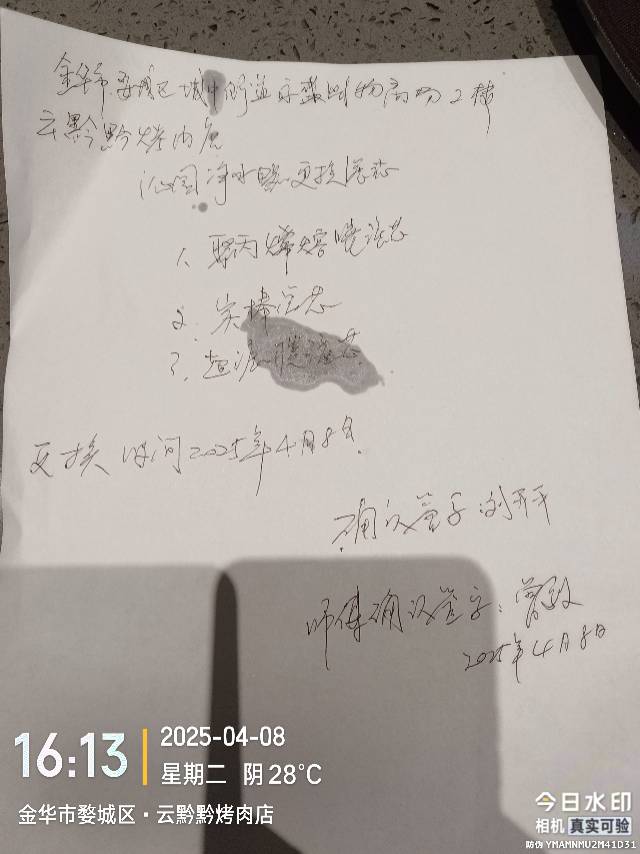 金华市婺城区城中街道永盛购物广场2楼
云黔黔烤肉店
沁园净水器更换滤芯
1、聚丙烯熔喷滤芯
2、炭棒滤芯
3、超滤膜滤芯
更换时间2025年4月8日
确认签字:刘开平
师傅确认签字:曾
2025年4月8日
16:13
2025-04-08
星期二 阴 28°C
金华市婺城区·云黔黔烤肉店
今日水印
相机 真实可验
防伪 YMAMNMU2M41D31